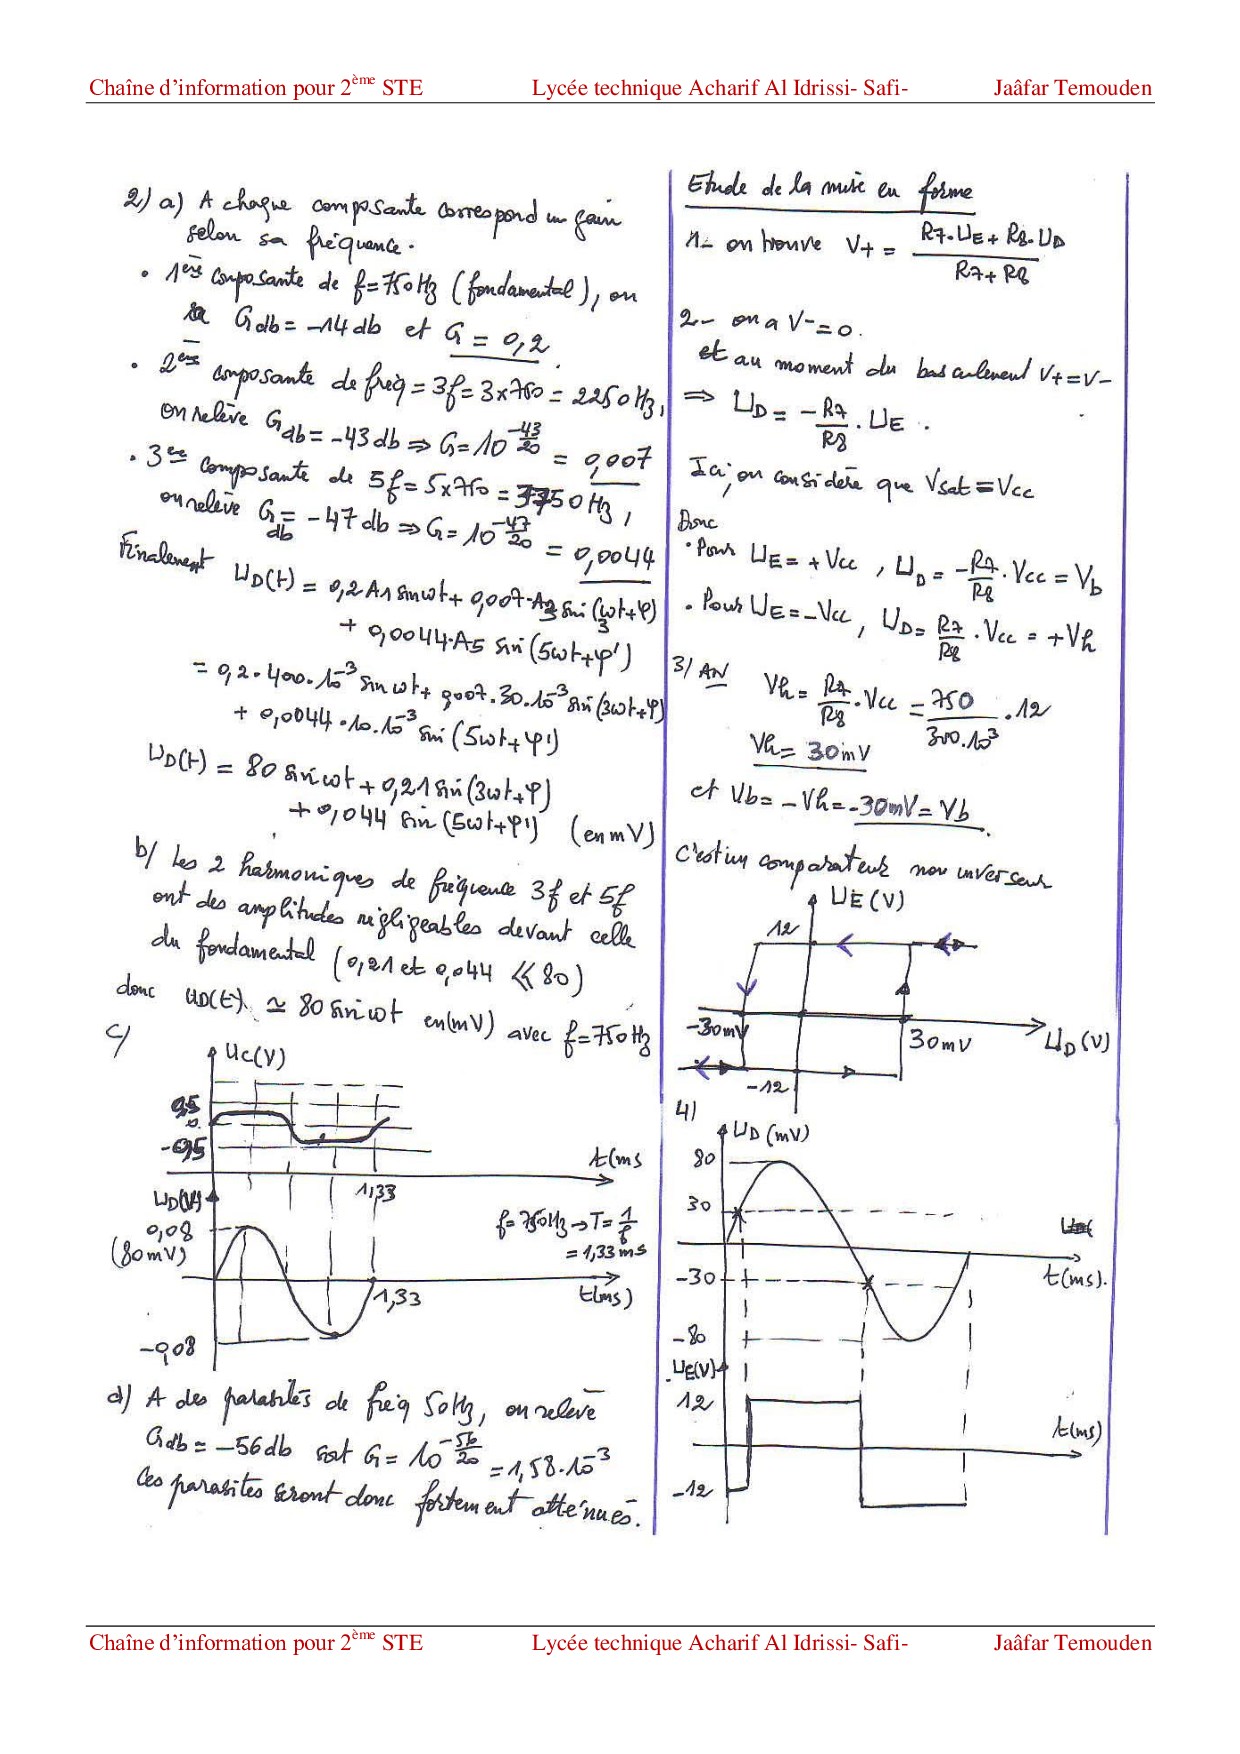 Chaîne d'information pour 2ème STE Lycée technique Acharif Al Idrissi- Safi- Jaâfar Temouden
2) a) A chaque composante correspond un gain
selon sa fréquence.
• 1ère composante de f=750Hz (fondamental), on
a Gdb = -14db et G = 0,2
• 2ère composante de freq = 3f = 3x750 = 2250Hz,
on relève Gdb = -43db ⇒ G = 10^(-43/20) = 0,007
• 3ère composante de 5f = 5x750 = 3750Hz,
on relève Gdb = -47db ⇒ G = 10^(-47/20) = 0,0044
Finalement UD(t) = 0,2A1 sin ωt + 0,007·A3 sin(3ωt+φ)
+ 0,0044·A5 sin(5ωt+φ')
= 0,2·400·10⁻³ sin ωt + 0,007·30·10⁻³ sin(3ωt+φ)
+ 0,0044·10·10⁻³ sin(5ωt+φ')
UD(t) = 80 sin ωt + 0,21 sin(3ωt+φ)
+ 0,044 sin(5ωt+φ') (en mV)
b/ Les 2 harmoniques de fréquence 3f et 5f
ont des amplitudes négligeables devant celle
du fondamental (0,21 et 0,044 ≪ 80)
donc UD(t) ≃ 80 sin ωt en(mV) avec f=750Hz
c/
Uc(V)
0,5
0
-0,5
t(ms
1,33
UD(V)
0,08
(80mV)
f=750Hz → T = 1/f
= 1,33ms
1,33
t(ms)
-0,08
d) A des parasites de freq 50Hz, on relève
Gdb = -56db soit G = 10^(-56/20) = 1,58·10⁻³
Ces parasites seront donc fortement atténués.
Etude de la mise en forme
1- on trouve V+ = (R7·UE + R8·UD)/(R7+R8)
2- on a V- = 0.
et au moment du basculement V+=V-
⇒ UD = -R7/R8 · UE .
Ici, on considère que Vsat = Vcc
Donc
• Pour UE = +Vcc , UD = -R7/R8 · Vcc = Vb
• Pour UE = -Vcc , UD = R7/R8 · Vcc = +Vh
3/ AN Vh = R7/R8 · Vcc = 750/300·10³ · 12
Vh = 30mV
et Vb = -Vh = -30mV = Vb
C'est un comparateur non inverseur
UE(V)
12
-30mV
30mV
UD(V)
-12
4)
UD(mV)
80
30
-30
t(ms).
-80
UE(V)
12
t(ms)
-12
Chaîne d'information pour 2ème STE Lycée technique Acharif Al Idrissi- Safi- Jaâfar Temouden